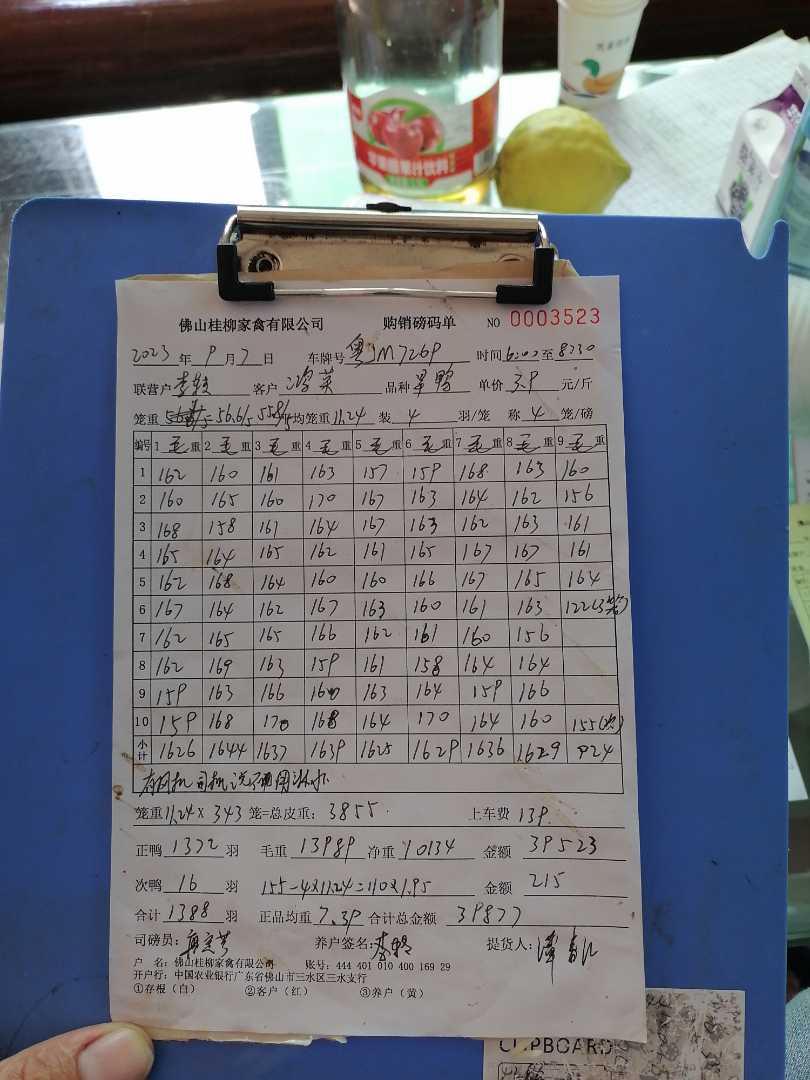 苹果醋果汁饮料
佛山桂柳家禽有限公司 购销磅码单 NO 0003523
2023年9月7日 车牌号粤JM7269 时间6:00至8:30
联营户 客户鸿英 品种旱鸭 单价3.9元/斤
笼重 =56.6/5 55.8/5 平均笼重11.24 装4羽/笼 称4笼/磅
编号 1毛重 2毛重 3毛重 4毛重 5毛重 6毛重 7毛重 8毛重 9毛重
1 162 160 161 163 157 159 168 163 160
2 160 165 160 170 167 163 164 162 156
3 168 158 161 164 167 163 162 163 161
4 165 164 165 162 161 165 167 167 161
5 162 168 164 160 160 166 167 165 164
6 167 164 162 167 163 160 161 163 122(3笼)
7 162 165 165 166 162 161 160 156
8 162 169 163 159 161 158 164 164
9 159 163 166 160 163 164 159 166
10 159 168 170 168 164 170 164 160 155(次)
小计 1626 1644 1637 1639 1625 1629 1636 1629 924
笼重11.24×343笼=总皮重:3855 上车费139
正鸭1372羽 毛重13989 净重10134 金额39523
次鸭16羽 155-4×11.24=110×1.95 金额215
合计1388羽 正品均重7.39 合计总金额39877
司磅员: 养户签名: 提货人:
户 名:佛山桂柳家禽有限公司 账号:444 401 010 400 169 29
开户行:中国农业银行广东省佛山市三水区三水支行
①存根(白) ②客户(红) ③养户(黄)
CLIPBOARD